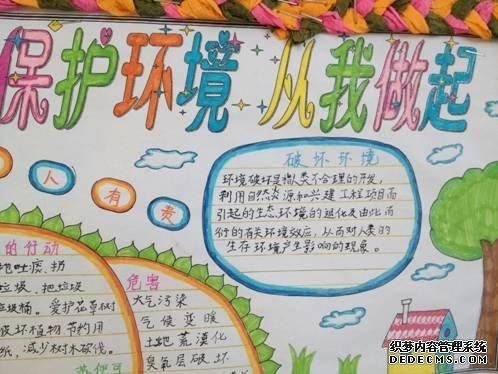 保护环境 从我做起
人有责
破坏环境
环境破坏是指人类不合理的开发,
利用自然资源和兴建工程项目而
引起的生态环境的退化及由此而
衍的有关环境效应,从而对人类的
生存环境产生影响的现象。
的行动
地吐痰、扔
垃圾、把垃圾
垃圾桶。爱护花草树
破坏植物 节约用
纸,减少树木砍伐。
危害
大气污染
气候变暖
土地荒漠化
臭氧层破坏
织梦内容管理系统
DEDECMS.COM